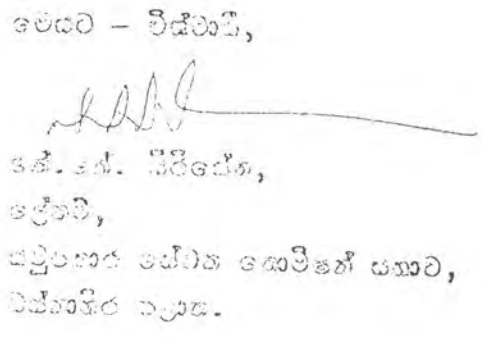 මෙයට - විශ්වාසී,
සිරිසේන,
ලේකම්,
සමුපකාර සේවක කොමිෂන් සභාව,
බස්නාහිර පළාත.